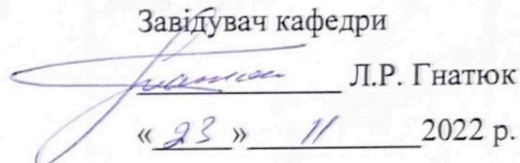 Завідувач кафедри
Л.Р. Гнатюк
« 23 » 11 2022 р.